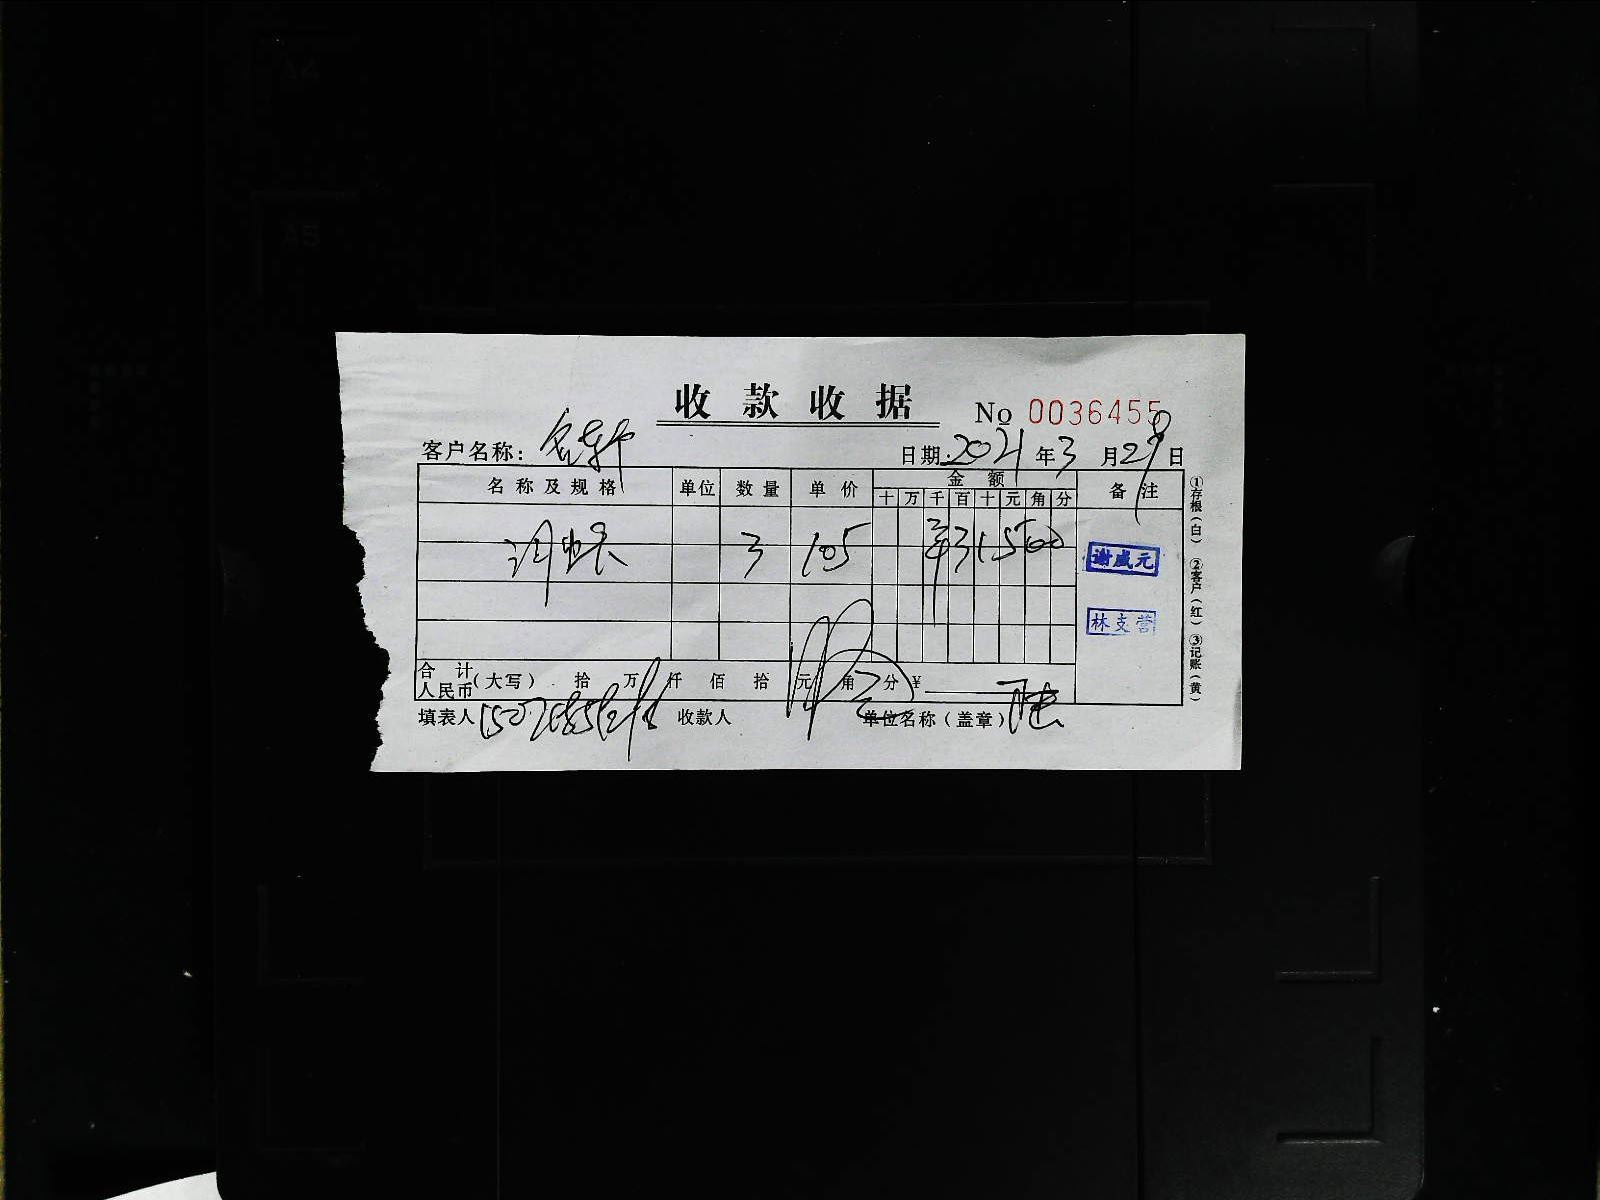 收款收据
No 0036455
客户名称: 名轩
日期: 2021年3月29日
名称及规格 单位 数量 单价 金额 备注
十万千百十元角分
3 105 ¥31500
谢威元
林支营
合计人民币(大写) 拾 万 仟 佰 拾 元 角 分 ¥
填表人 收款人 单位名称(盖章)
①存根(白) ②客户(红) ③记账(黄)